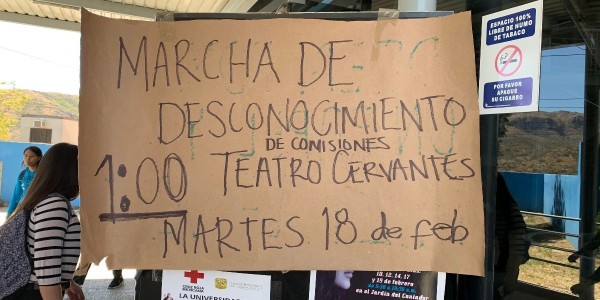 MARCHA DE
DESCONOCIMIENTO
DE COMISIONES
1:00 TEATRO CERVANTES
MARTES 18 de feb
ESPACIO 100%
LIBRE DE HUMO
DE TABACO
POR FAVOR
APAGUE
SU CIGARRO
LA UNIVERSIDAD
10, 12, 14, 17
y 19 de febrero
en el Jardín del Cantador